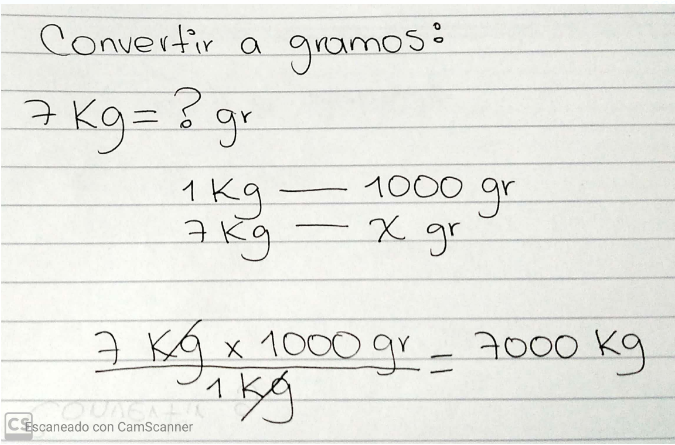 Convertir a gramos:
7 Kg = ? gr
1 Kg — 1000 gr
7 Kg — x gr
7 Kg x 1000 gr = 7000 Kg
1 Kg
CS Escaneado con CamScanner